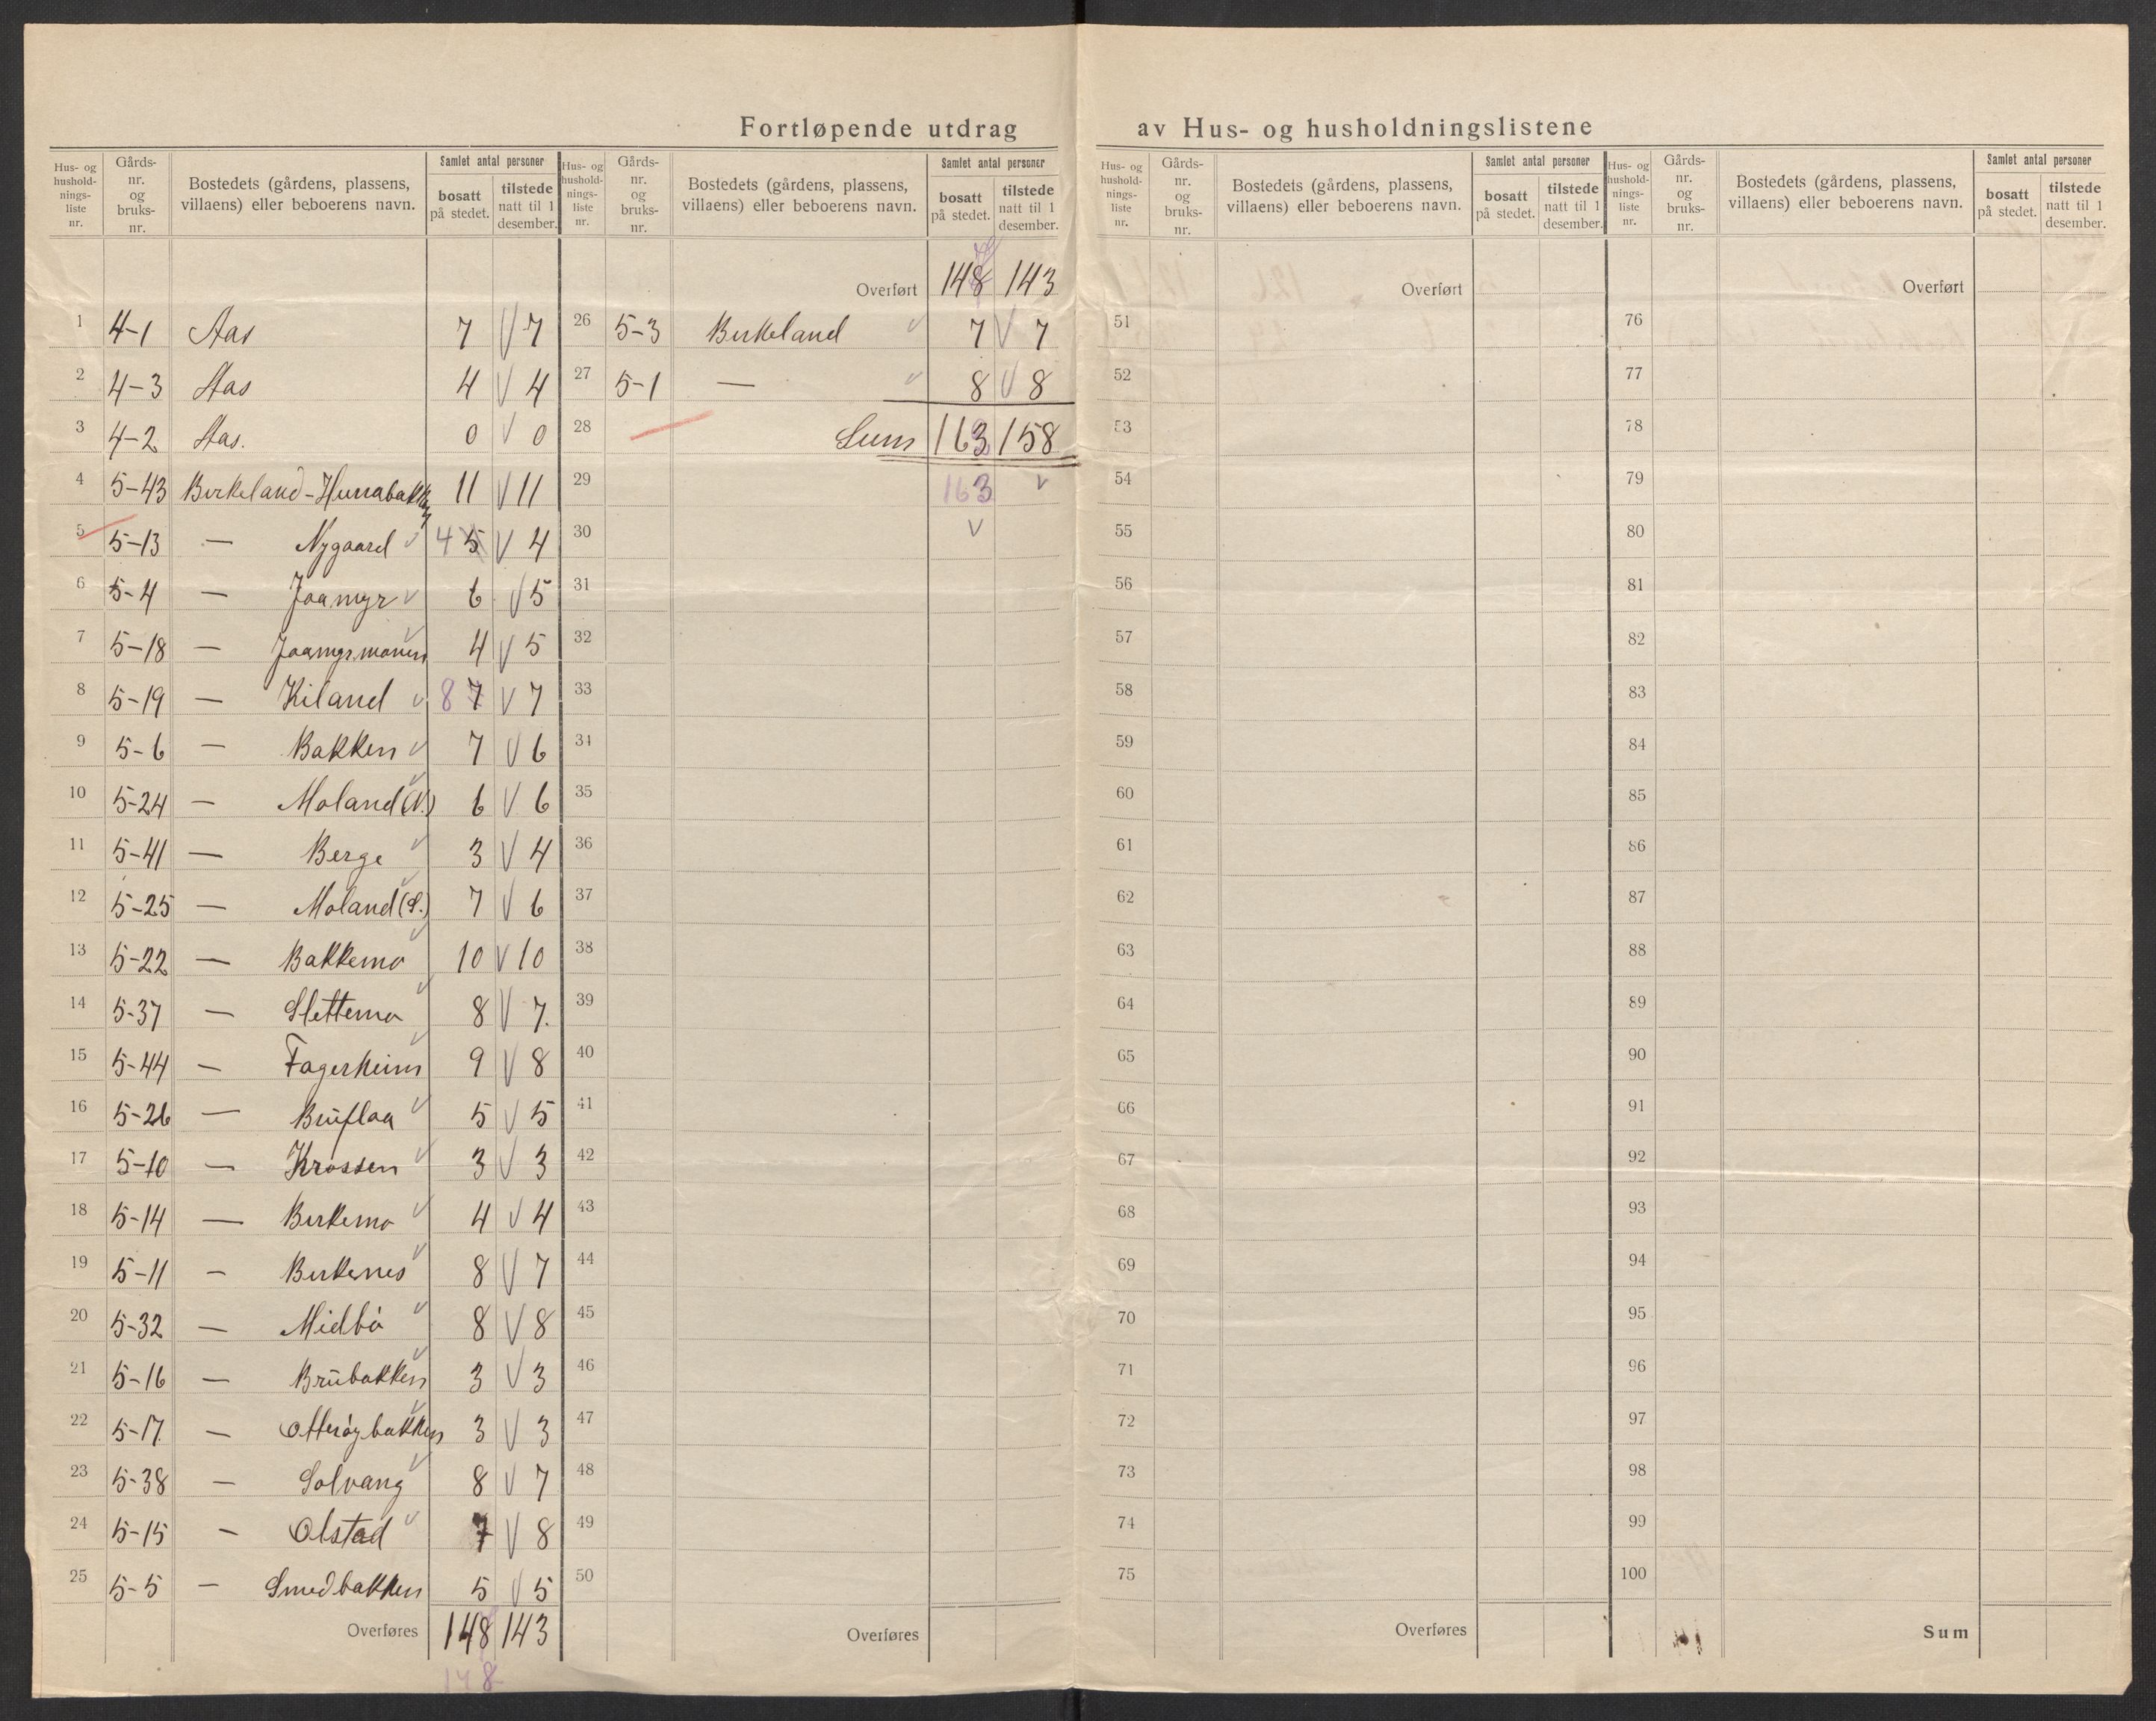 Fortløpende utdrag av Hus- og husholdningslistene
Hus- og hushold-nings-liste nr. | Gårds-nr. og bruks-nr. | Bostedets (gårdens, plassens, villaens) eller beboerens navn. | Samlet antal personer | bosatt på stedet. | tilstede natt til 1 desember.
1 4-1 Aas 7 V 7
2 4-3 Aas 4 V 4
3 4-2 Aas. 0 V 0
4 5-43 Birkeland-Hunabakken 11 V 11
5 5-13 — Nygaard V 4 5 V 4
6 5-4 — Jaamyr V 6 V 5
7 5-18 — Jaamyrmonen V 4 V 5
8 5-19 — Kiland V 8 7 V 7
9 5-6 — Bakken V 7 V 6
10 5-24 — Moland (N.) V 6 V 6
11 5-41 — Berge V 3 V 4
12 5-25 — Moland (S.) V 7 V 6
13 5-22 — Bakkemo V 10 V 10
14 5-37 — Slettemo V 8 V 7.
15 5-44 — Fagerheim V 9 V 8
16 5-26 — Bruflaa V 5 V 5
17 5-10 — Krossen V 3 V 3
18 5-14 — Birkemo V 4 V 4
19 5-11 — Birkenes V 8 V 7
20 5-32 — Midbö V 8 V 8
21 5-16 — Brubakken V 3 V 3
22 5-17. — Otteröybakken V 3 V 3
23 5-38 — Solvang V 8 V 7
24 5-15 — Olstad V 7 V 8
25 5-5 — Smedbakken 5 V 5
Overføres 148 143
148
Hus- og hushold-nings-liste nr. | Gårds-nr. og bruks-nr. | Bostedets (gårdens, plassens, villaens) eller beboerens navn. | Samlet antal personer | bosatt på stedet. | tilstede natt til 1 desember.
Overført 148 143
26 5-3 Birkeland V 7 V 7
27 5-1 — V 8 V 8
28 Sum 163 158
29 163 V
30 V
31
32
33
34
35
36
37
38
39
40
41
42
43
44
45
46
47
48
49
50
Overføres
Hus- og hushold-nings-liste nr. | Gårds-nr. og bruks-nr. | Bostedets (gårdens, plassens, villaens) eller beboerens navn. | Samlet antal personer | bosatt på stedet. | tilstede natt til 1 desember.
Overført
51
52
53
54
55
56
57
58
59
60
61
62
63
64
65
66
67
68
69
70
71
72
73
74
75
Overføres
Hus- og hushold-nings-liste nr. | Gårds-nr. og bruks-nr. | Bostedets (gårdens, plassens, villaens) eller beboerens navn. | Samlet antal personer | bosatt på stedet. | tilstede natt til 1 desember.
Overført
76
77
78
79
80
81
82
83
84
85
86
87
88
89
90
91
92
93
94
95
96
97
98
99
100
Sum